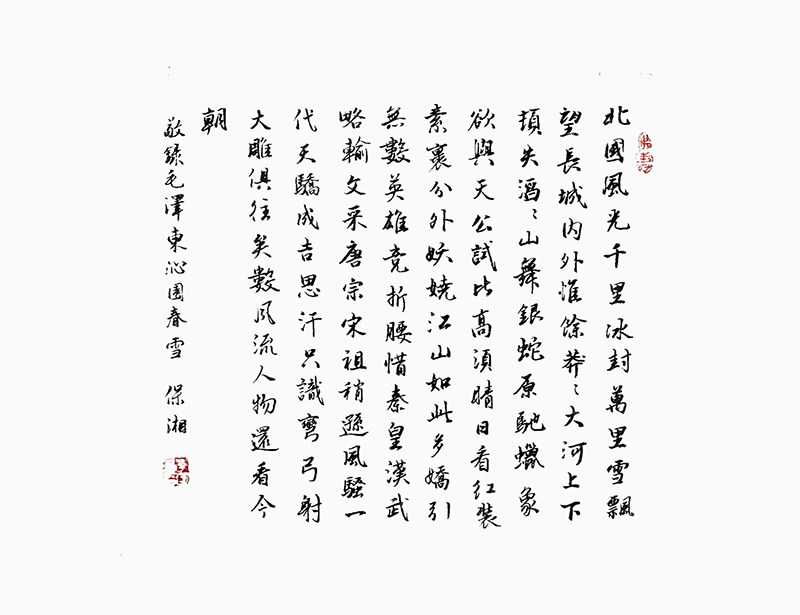 北國風光千里冰封萬里雪飄
望長城内外惟餘莽〻大河上下
頓失滔〻山舞銀蛇原馳蠟象
欲與天公試比高須晴日看紅裝
素裹分外妖嬈江山如此多嬌引
無數英雄竞折腰惜秦皇漢武
略輸文采唐宗宋祖稍遜風騷一
代天驕成吉思汗只識彎弓射
大雕俱往矣數風流人物還看今
朝
敬錄毛澤東沁園春雪 保湘